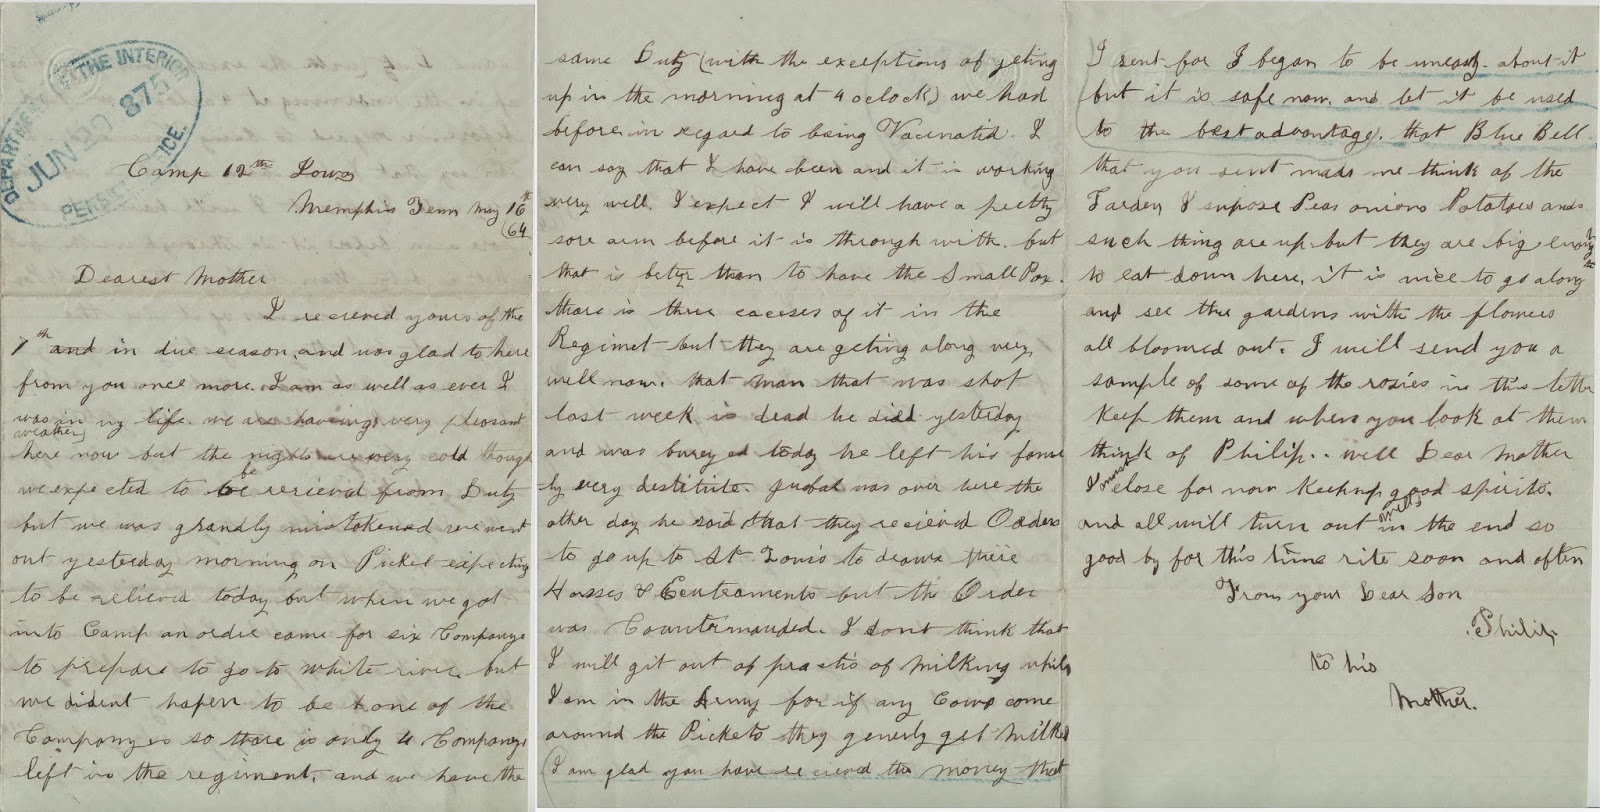 DEPARTMENT OF THE INTERIOR
JUN 20 875
PENSION OFFICE.
Camp 12th Iowa
Memphis Tenn May 16th
64
Dearest Mother
I recieved yours of the
7th and in due season, and was glad to here
from you once more. I am as well as ever I
was in my life. we are having very pleasant
weather
here now but the nights are very cold though
we expected to be be relieved from Duty
but we was grandly mistokened we went
out yesterday morning on Picket expecting
to be relieved today but when we got
into Camp an order came for six Companys
to prepare to go to white river, but
we dident hapen to be one of the
Companys so there is only 4 Companys
left in the regiment, and we have the
same Duty (with the exceptions of geting
up in the morning at 4 oclock) we had
before in regard to being Vacinatid. I
can say that I have been and it is working
very well. I expect I will have a pretty
sore arm before it is through with. but
that is beter than to have the Small Pox.
thare is three cacses of it in the
Regimet but they are geting along very
well now. that man that was shot
last week is dead he died yesterday
and was bureyed today he left his fame
ly very destitute. was over here the
other day he said that they recieved Orders
to go up to St. Louis to draw there
Horses & Ecutraments but the Order
was Countermanded. I dont think that
I will git out of practis of Milking while
I am in the Army for if any Cows come
around the Pickets they generly get Milked
(I am glad you have recieved the money that
I sent for I began to be uneasy about it
but it is safe now. and let it be used
to the best advantage. that Blue Bell
that you sent makes me think of the
Garden I supose Peas onions Potatoes and
such thing are up but they are big enough
to eat down here, it is nice to go along
and see the gardens with the flowers
all bloomed out. I will send you a
sample of some of the rosies in this letter
Keep them and when you look at them
think of Philip.. well Dear Mother
I must close for now Keep up good spirits.
and all will turn out well in the end so
good by for this time rite soon and often
From your Dear Son
Philip
to his
Mother.